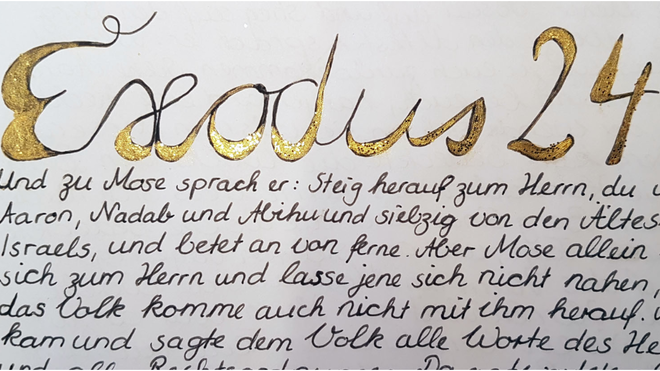 Exodus 24
Und zu Mose sprach er: Steig herauf zum Herrn, du
Aaron, Nadab und Abihu und siebzig von den
Israels, und betet an von ferne. Aber Mose allein
sich zum Herrn und lasse jene sich nicht nahen,
das Volk komme auch nicht mit ihm herauf.
kam und sagte dem Volk alle Worte des